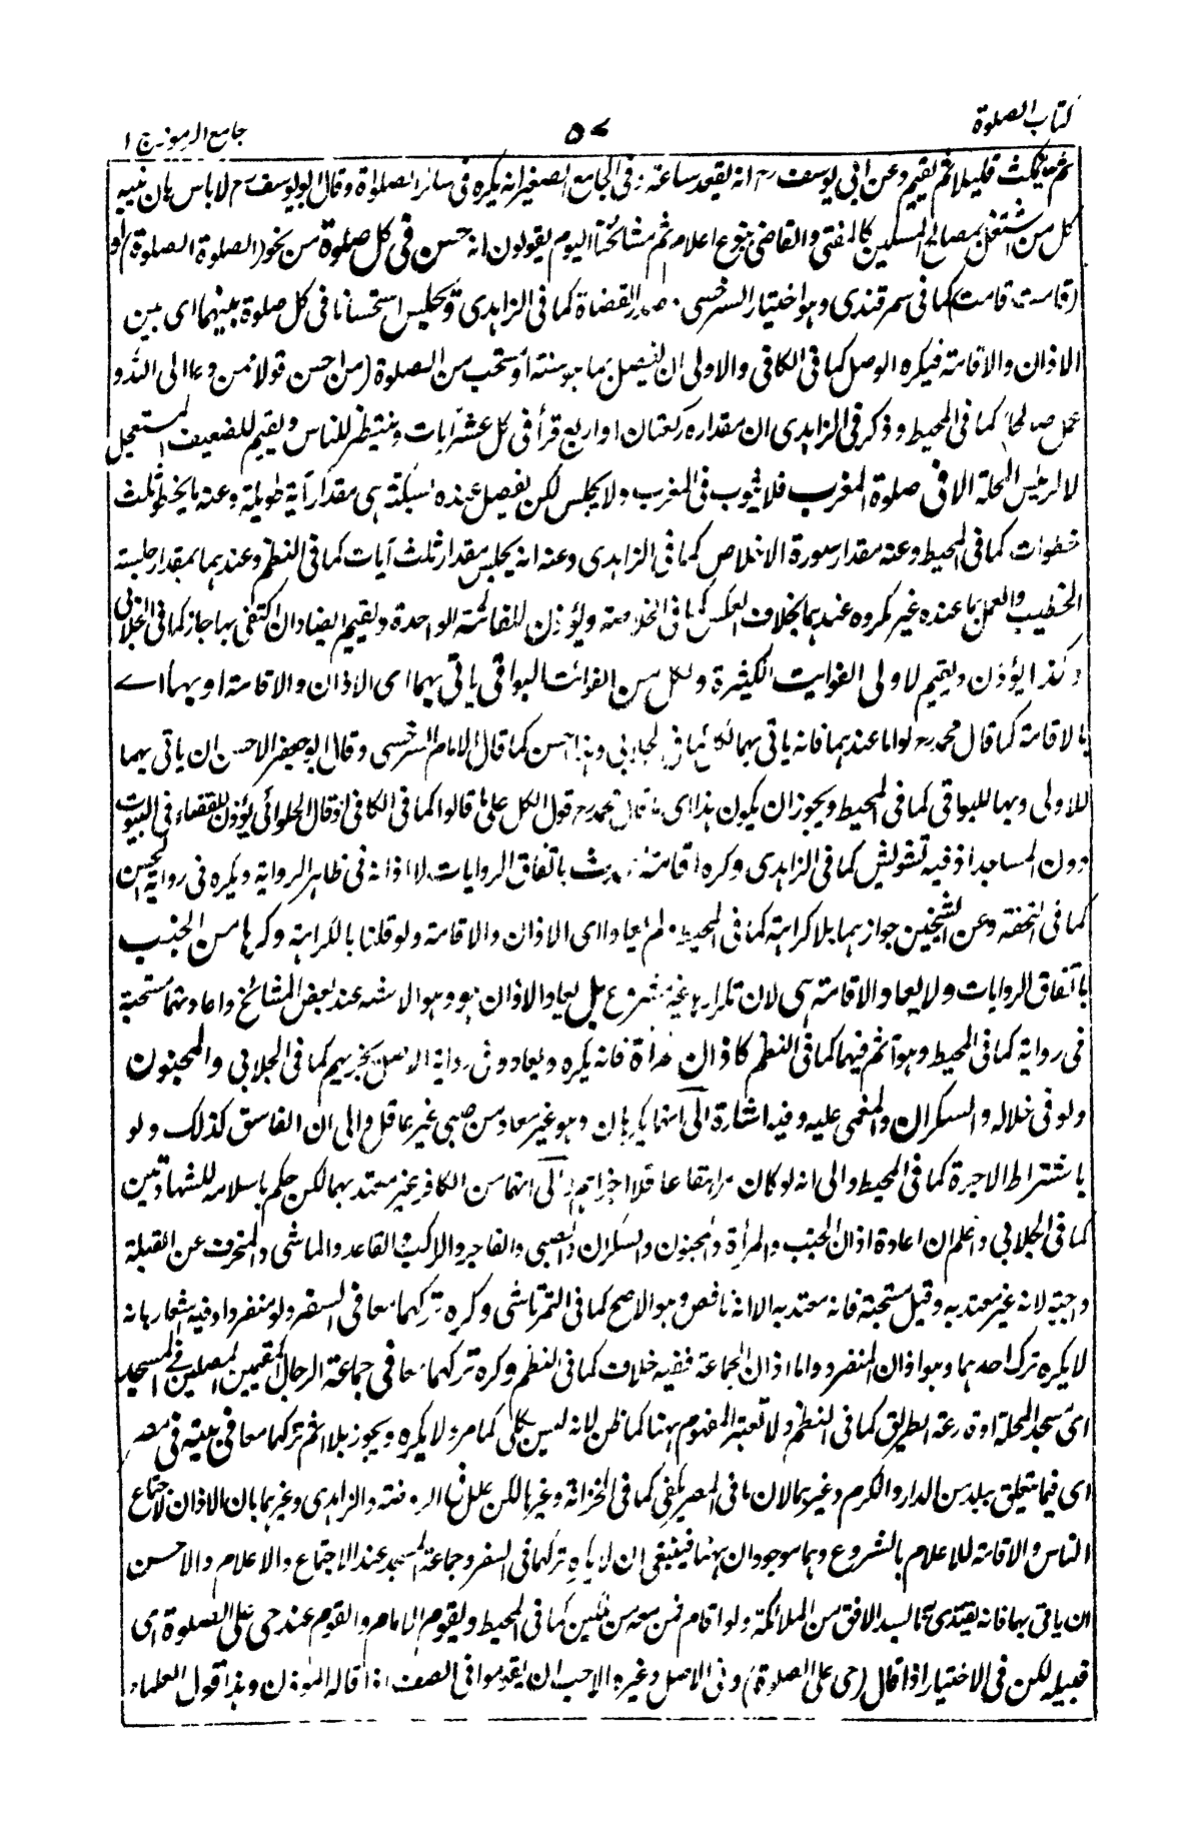 كتاب الصلوة
٥٧
جامع الرموز ج ١
ثم يمكث قليلا ثم يقيم وعن ابي يوسف رح انه يقعد ساعة وفي الجامع الصغير انه يكره في سائر الصلواة وقال ابو يوسف رح لا باس بان ينبه
كل من اشتغل بمصالح المسلمين كالمفتي والقاضي بنوع اعلام ثم مشائخنا اليوم يقولون انه حسن في كل صلوة من نحو (الصلوة الصلوة) او
(قامت قامت) كما في سمرقندي وهو اختيار السرخسي وصدر القضاة كما في الزاهدي ويجلس استحسانا في كل صلوة بينهما اى بين
الاذان والاقامة فيكره الوصل كما في الكافي والاولى ان يفصل بما هو سنة او مستحب من الصلوة (من احسن قولا ممن دعا الى الله و
عمل صالحا) كما في المحيط وذكر في الزاهدي ان مقداره ركعتان او اربع قرأ في كل عشر آيات وينتظر للناس ويقيم للضعيف المستعجل
لا لرئيس المحلة الا في صلوة المغرب فلا يثوب في المغرب ولا يجلس لكن يفصل عنده بسكتة هي مقدار آية طويلة وعنه ما يخطو ثلث
خطوات كما في المحيط وعنه مقدار سورة الاخلاص كما في الزاهدي وعنه انه يجلس مقدار ثلث آيات كما في النظم وعندهما بمقدار جلسة
الخطيب والعمل بما عنده غير مكروه عندهما بخلاف العكس كما في الخلاصة ويؤذن للفائتة الواحدة ويقيم ايضا وان اكتفى بها جاز كما في الجلابي
وكذا يؤذن ويقيم لاولى الفوايت الكثيرة ولكل من الفوائت البواقي ياتي بهما اى الاذان والاقامة او بها اے
بالاقامة كما قال محمد رح واما عندهما فانه ياتي بهما لكل كما في الجلابي وهذا حسن كما قال الامام السرخسي وقال ابو جعفر الاحسن ان ياتي بهما
للاولى وبها للبواقي كما في المحيط ويجوز ان يكون هذا اى ما قال محمد رح قول الكل على ما قالوا كما في الكافي وقال الحلوائي يؤذن للقضاء في البيوت
دون المساجد اذ فيه تشويش كما في الزاهدي وكره اقامة المحدث باتفاق الروايات لا اذانه في ظاهر الرواية ويكره في رواية الحسن
كما في التحفة وعن الشيخين جوازهما بلا كراهة كما في المحيط ولم يعادا اى الاذان والاقامة ولو قلنا بالكراهة وكرها من الجنب
باتفاق الروايات ولا يعاد والاقامة هي لان تكرارها غير مشروع بل يعاد الاذان هو وهو الاشبه عند بعض المشائخ واعادتهما مستحبة
في رواية كما في المحيط وهو آثم فيهما كما في النظم كاذان المرأة فانه يكره ويعاد وفي رواية الاصل يجزيهم كما في الجلابي والمجنون
ولو في خلاله والسكران والمغمى عليه وفيه اشارة الى انهما يكرهان وهو غير معاد من صبي غير عاقل والى ان الفاسق كذلك ولو
باشتراط الاجرة كما في المحيط والى انه لو كان مراهقا عاقلا اجزاهم والى انهما من الكافر غير معتد بهما لكن حكم باسلامه للشهادتين
كما في الجلابي واعلم ان اعادة اذان الجنب والمرأة والمجنون والسكران والصبي والفاجر والراكب والقاعد والماشي والمنحرف عن القبلة
واجبة لانه غير معتد به وقيل مستحبة فانه معتد به الا انه ناقص وهو الاصح كما في التمرتاشي وكره تركهما معا في السفر ولو منفردا وفيه شعار بانه
لا يكره ترك احدهما وهو اذان المنفرد واما اذان الجماعة ففيه خلاف كما في النظم وكره تركهما معا في جماعة الرجال المقيمين المصلين في المسجد
اى مسجد المحلة او قارعة الطريق كما في النظم ولا تعتبر المفهوم ههنا كما ظن لانه ليس بكلي كما مر ولا يكره ويجوز بلا اثم تركهما معا في بيته في مصر
اى فيما يتعلق ببلد من الدار والكرم وغيرهما لان ما في المصر يكفي كما في الخزانة وغيرها لكن علل في الروضة والزاهدي وغيرهما بان الاذان لاجتماع
الناس والاقامة للاعلام بالشروع وهما موجودان ههنا فينبغي ان لا يكره تركهما في السفر وجماعة المسجد عند الاجتماع والاعلام والاحسن
ان ياتي بهما فانه يقتدي به ما يسد الافق من الملائكة ولو اقام فمن معه من ملكين كما في المحيط ويقوم الامام والقوم عند حي على الصلوة اى
قبيله لكن في الاختيار اذا قال (حى على الصلوة) وفي الاصل وغيره الاحب ان يقوموا في الصف اذا قاله المؤذن وهذا قول العلماء